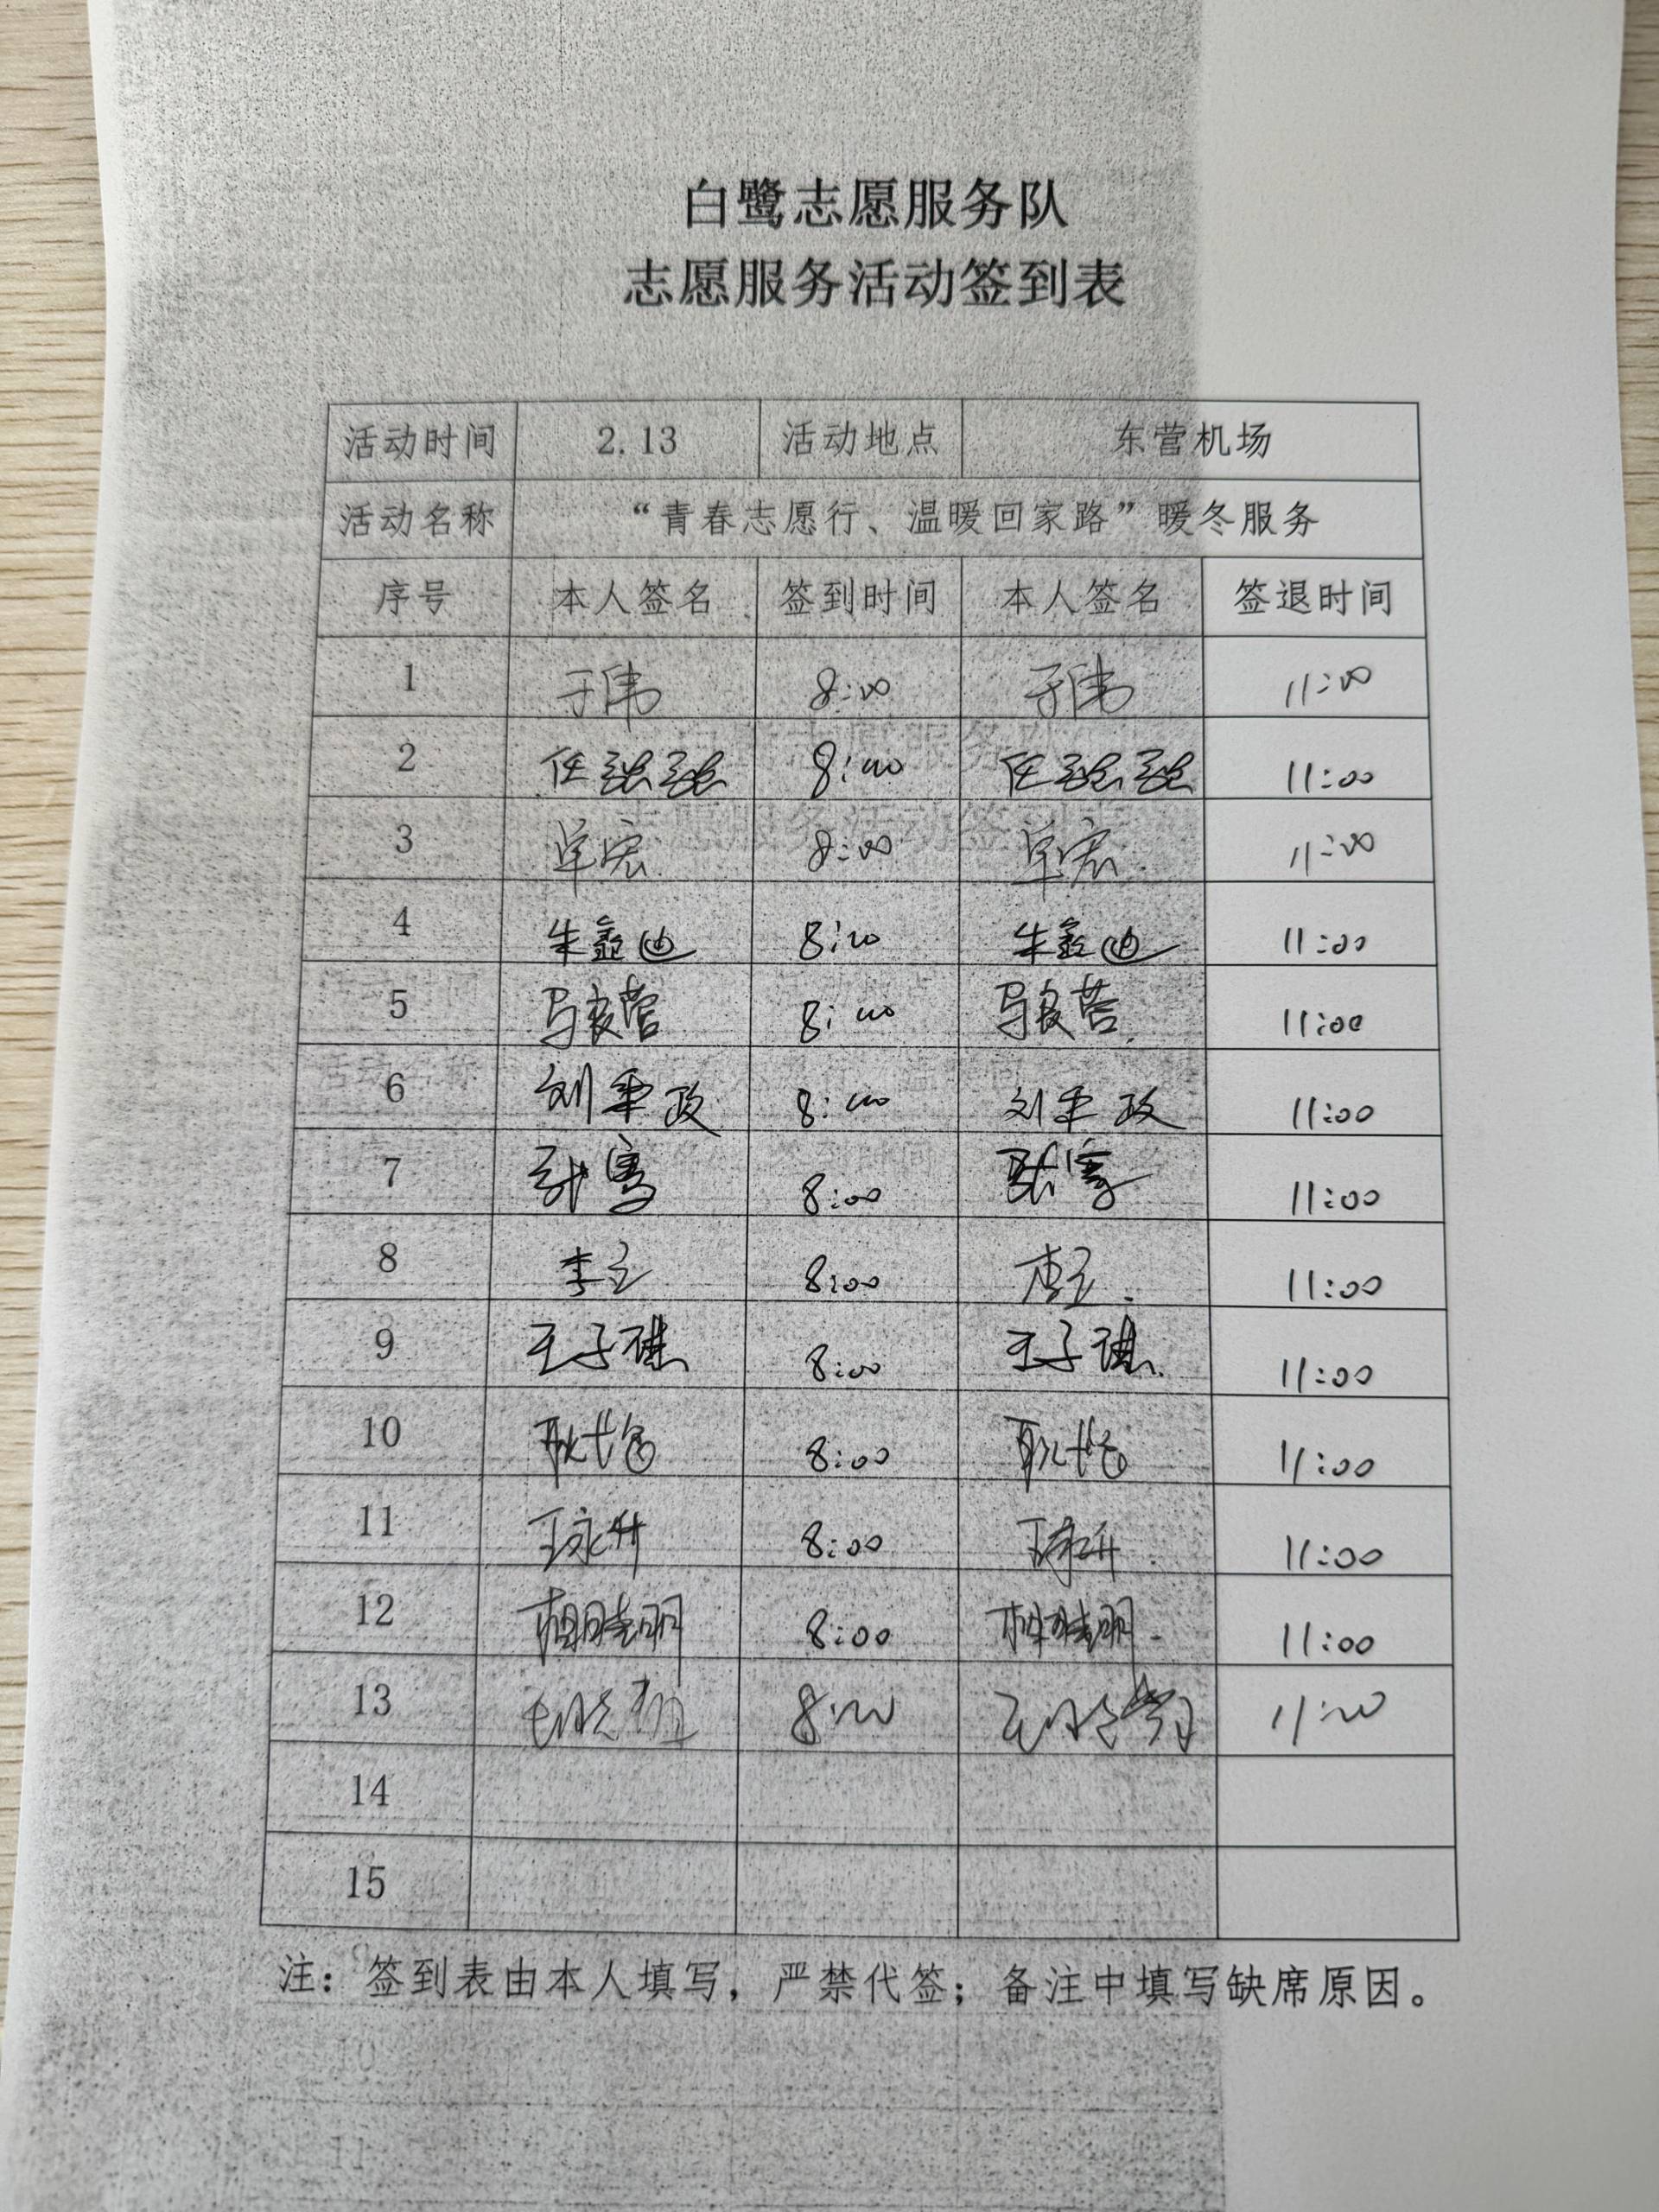 白鹭志愿服务队
志愿服务活动签到表
活动时间 2.13 活动地点 东营机场
活动名称 “青春志愿行、温暖回家路”暖冬服务
序号 本人签名 签到时间 本人签名 签退时间
1 于伟 8:00 于伟 11:00
2 任强强 8:00 任强强 11:00
3 单宏 8:00 单宏 11:00
4 朱鑫迪 8:00 朱鑫迪 11:00
5 马良营 8:00 马良营 11:00
6 刘秉政 8:00 刘秉政 11:00
7 8:00 11:00
8 李立 8:00 李立 11:00
9 王子琪 8:00 王子琪 11:00
10 8:00 11:00
11 王永升 8:00 王永升 11:00
12 相晓明 8:00 相晓明 11:00
13 8:00 11:00
14
15
注：签到表由本人填写，严禁代签；备注中填写缺席原因。